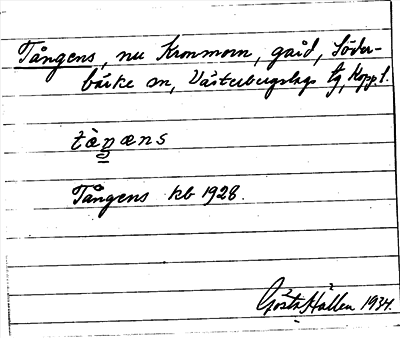 Tångens, nu Kronmorn, gård, Söder-
bärke sn, Västerbergslags tg, Kopp l.
tàŋæns
Tångens kb 1928.
Gösta Hallén 1934.